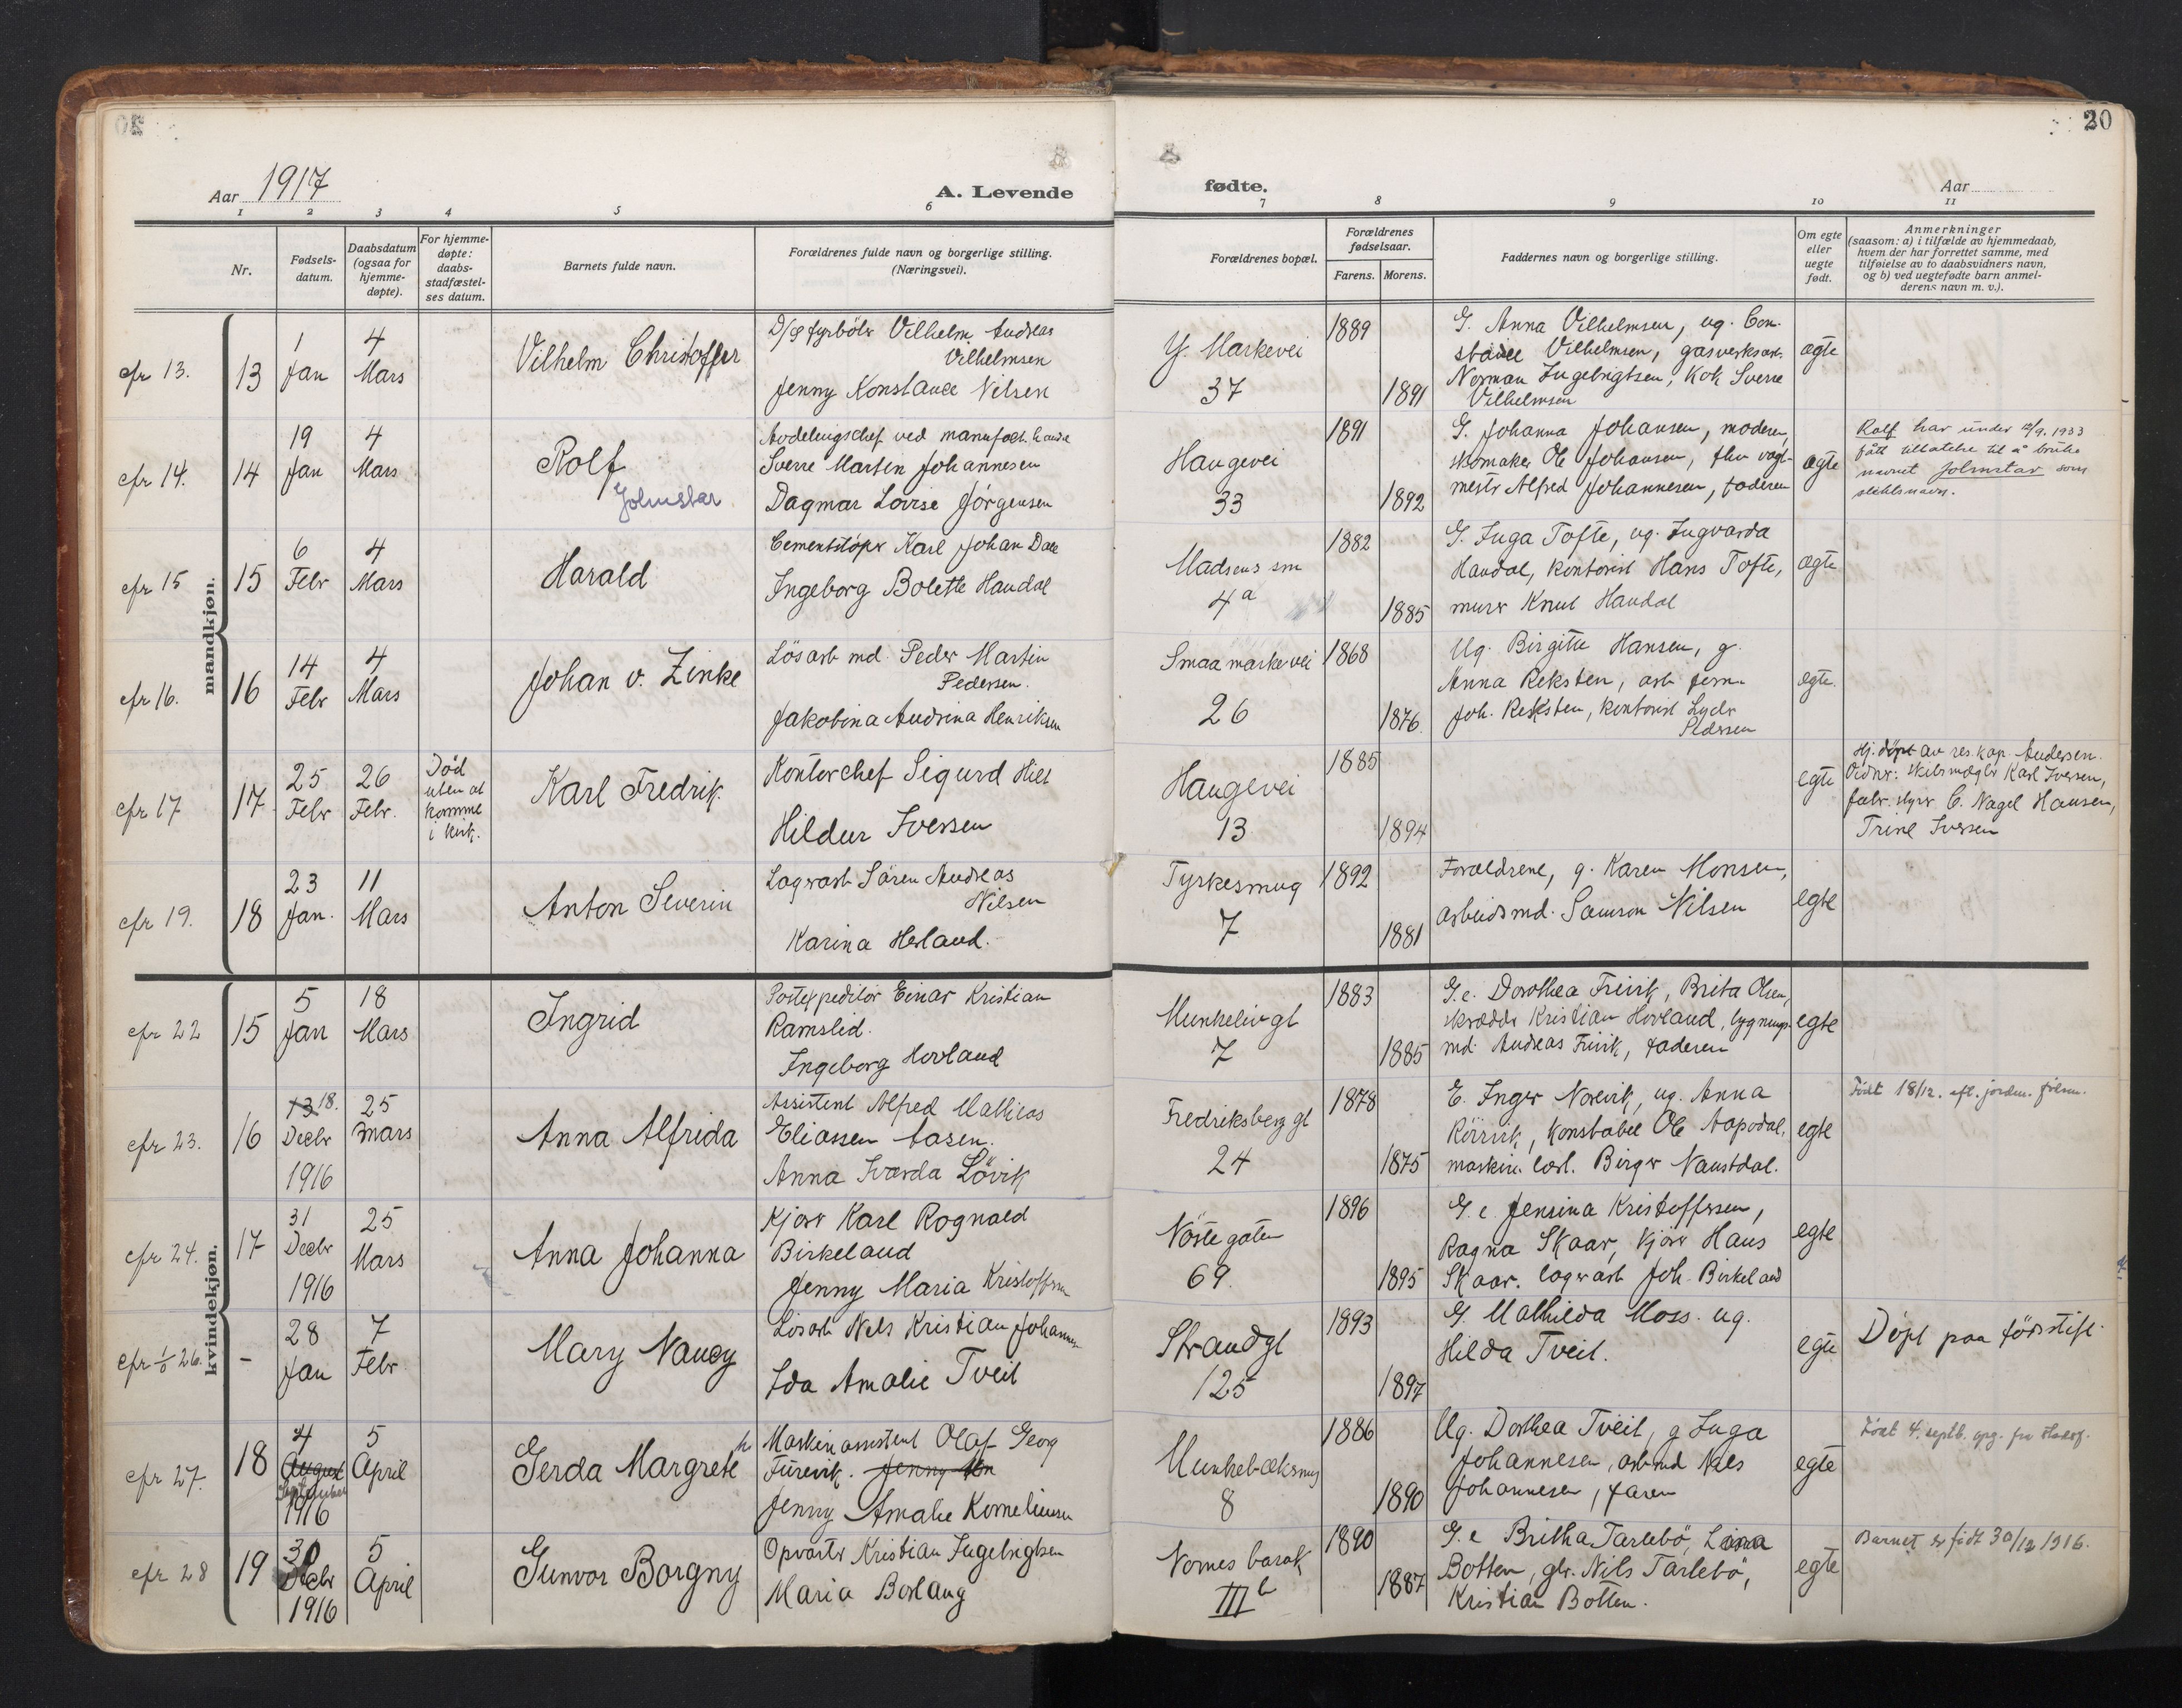 20
Aar 1917
A. Levende
fødte.
Aar
1 2 3 4 5 6 7 8 9 10 11
Nr.
Fødsels-
datum.
Daabsdatum
(ogsaa for
hjemme-
døpte).
For hjemme-
døpte:
daabs-
stadfæstel-
ses datum.
Barnets fulde navn.
Forældrenes fulde navn og borgerlige stilling.
(Næringsvei).
Forældrenes bopæl.
Forældrenes
fødselsaar.
Farens. Morens.
Faddernes navn og borgerlige stilling.
Om egte
eller
uegte
født.
Anmerkninger
(saasom: a) i tilfælde av hjemmedaab,
hvem der har forrettet samme, med
tilføielse av to daabsvidners navn,
og b) ved uegtefødte barn anmel-
derens navn m. v.).
mandkjøn.
cfr 13.
13
1
Jan
4
Mars
Vilhelm Christoffer
D/S fyrbøter Vilhelm Andreas
Vilhelmsen
Jenny Konstance Nilsen
Y. Markevei
37
1889
1891
G. Anna Vilhelmsen, ug. Con-
stance Vilhelmsen, gasverksarb.
Norman Ingebrigtsen, Kok Sverre
Vilhelmsen
ægte
cfr 14.
14
19
Jan
4
Mars
Rolf
Jolmstar
Avdelingschef ved
Sverre Marten Johannesen
Dagmar Lovise Jørgensen
Haugevei
33
1891
1892
G. Johanna Johansen, moderen,
skomaker Ole Johansen, vagt-
mestr Alfred Johannesen, faderen
ægte
Rolf har under 12/9. 1933
fått tillatelse til å bruke
navnet Jolmstar som
slektsnavn.
cfr 15
15
6
Febr
4
Mars
Harald
Cementstøper Karl Johan Dale
Ingeborg Bolette Haudal
Madsens sm
4a
1882
1885
G. Inga Tofte, ug. Ingvarda
Haudal, kontorist Hans Tofte,
murer Knut Haudal
ægte
cfr 16.
16
14
Febr
4
Mars
Johan v. Zinke
Løsarb md. Peder Martin
Pedersen.
Jakobina Andrina Henriksen
Smaamarkevei
26
1868
1876.
Ug. Birgitte Hansen, g.
Anna Reksten, arb form.
Joh. Reksten, kontorist Lyder
Pedersen
ægte.
cfr 17
17
25
Febr
26
Febr.
Død
uten at
komme
i kirk.
Karl Fredrik
Kontorchef Sigurd Hilt
Hildur Iversen
Haugevei
13
1885
1894
egte
Hj. døpt av res. kap. Andersen.
Vidner: skibsmægler Karl Iversen,
fabr. styr C. Nagel Hansen,
Trine Iversen
cfr 19.
18
23
Jan.
11
Mars
Anton Severin
Lagerarb Søren Andreas
Nilsen
Karina Herland.
Tyrkesmug
7
1892
1881
Forældrene, g. Karen Monsen,
arbeidsmd. Samson Nilsen
egte
kvindekjøn.
cfr 22
15
5
Jan
18
Mars
Ingrid
Postexpeditør Einar Kristian
Ramslid.
Ingeborg Hovland
Munkelivgt
7
1883
1885
G.e. Dorothea Freirk, Brita Olsen,
skrædder Kristian Hovland, bygnings-
md. Andreas Freirk, faderen
egte
cfr 23.
16
13 18.
Decbr
1916
25
mars
Anna Alfrida
Assistent Alfred Mathias
Eliassen Aasen.
Anna Ivarda Løvik
Fredriksberg gt
24
1878
1875
E. Inger Norevik, ug. Anna
Rørvik, konstabel Ole Aapodal,
maskin. lærl. Birger Naustdal.
egte
Født 18/12. efl. jordm. prtm.
cfr 24.
17
31
Decbr
1916
25
Mars
Anna Johanna
Kjører Karl Rognald
Birkeland
Jenny Maria Kristoffersen
Nøstegaten
69.
1896
1895
G.e. Jensina Kristoffersen,
Ragna Skaar, Kjører Hans
Skaar. lagerarb Joh. Birkeland
egte
cfr 26.
–
28
Jan
7
Febr
Mary Nancy
Løsarb Nils Kristian Johannesen
Ida Amalie Tveit
Strandgt
125
1893
1897
G. Mathilda Moss. ug.
Hilda Tveit.
egte
Døpt paa fødsstift.
cfr 27.
18
4
August
September
1916
5
April
Gerda Margrete
Maskinassistent Olaf Georg
Furevik. Jenny Am
Jenny Amalie Korneliussen
Munkebæksmug
8
1886
1890
Ug. Dorthea Tveit, g Inga
Johannesen, arb md Nils
Johannesen, faren
egte
Født 4. septb. opg. fra
cfr 28
19
30
Decbr
1916
5
April
Gunvor Borgny
Opvarter Kristian Ingebrigtsen
Maria Borlaug
Nornes barak
III b
1890
1887
G.e Britha Tarlebø, Lina
Botten, gbr. Nils Tarlebø,
Kristian Botten.
egte
Barnet er født 30/12 1916.